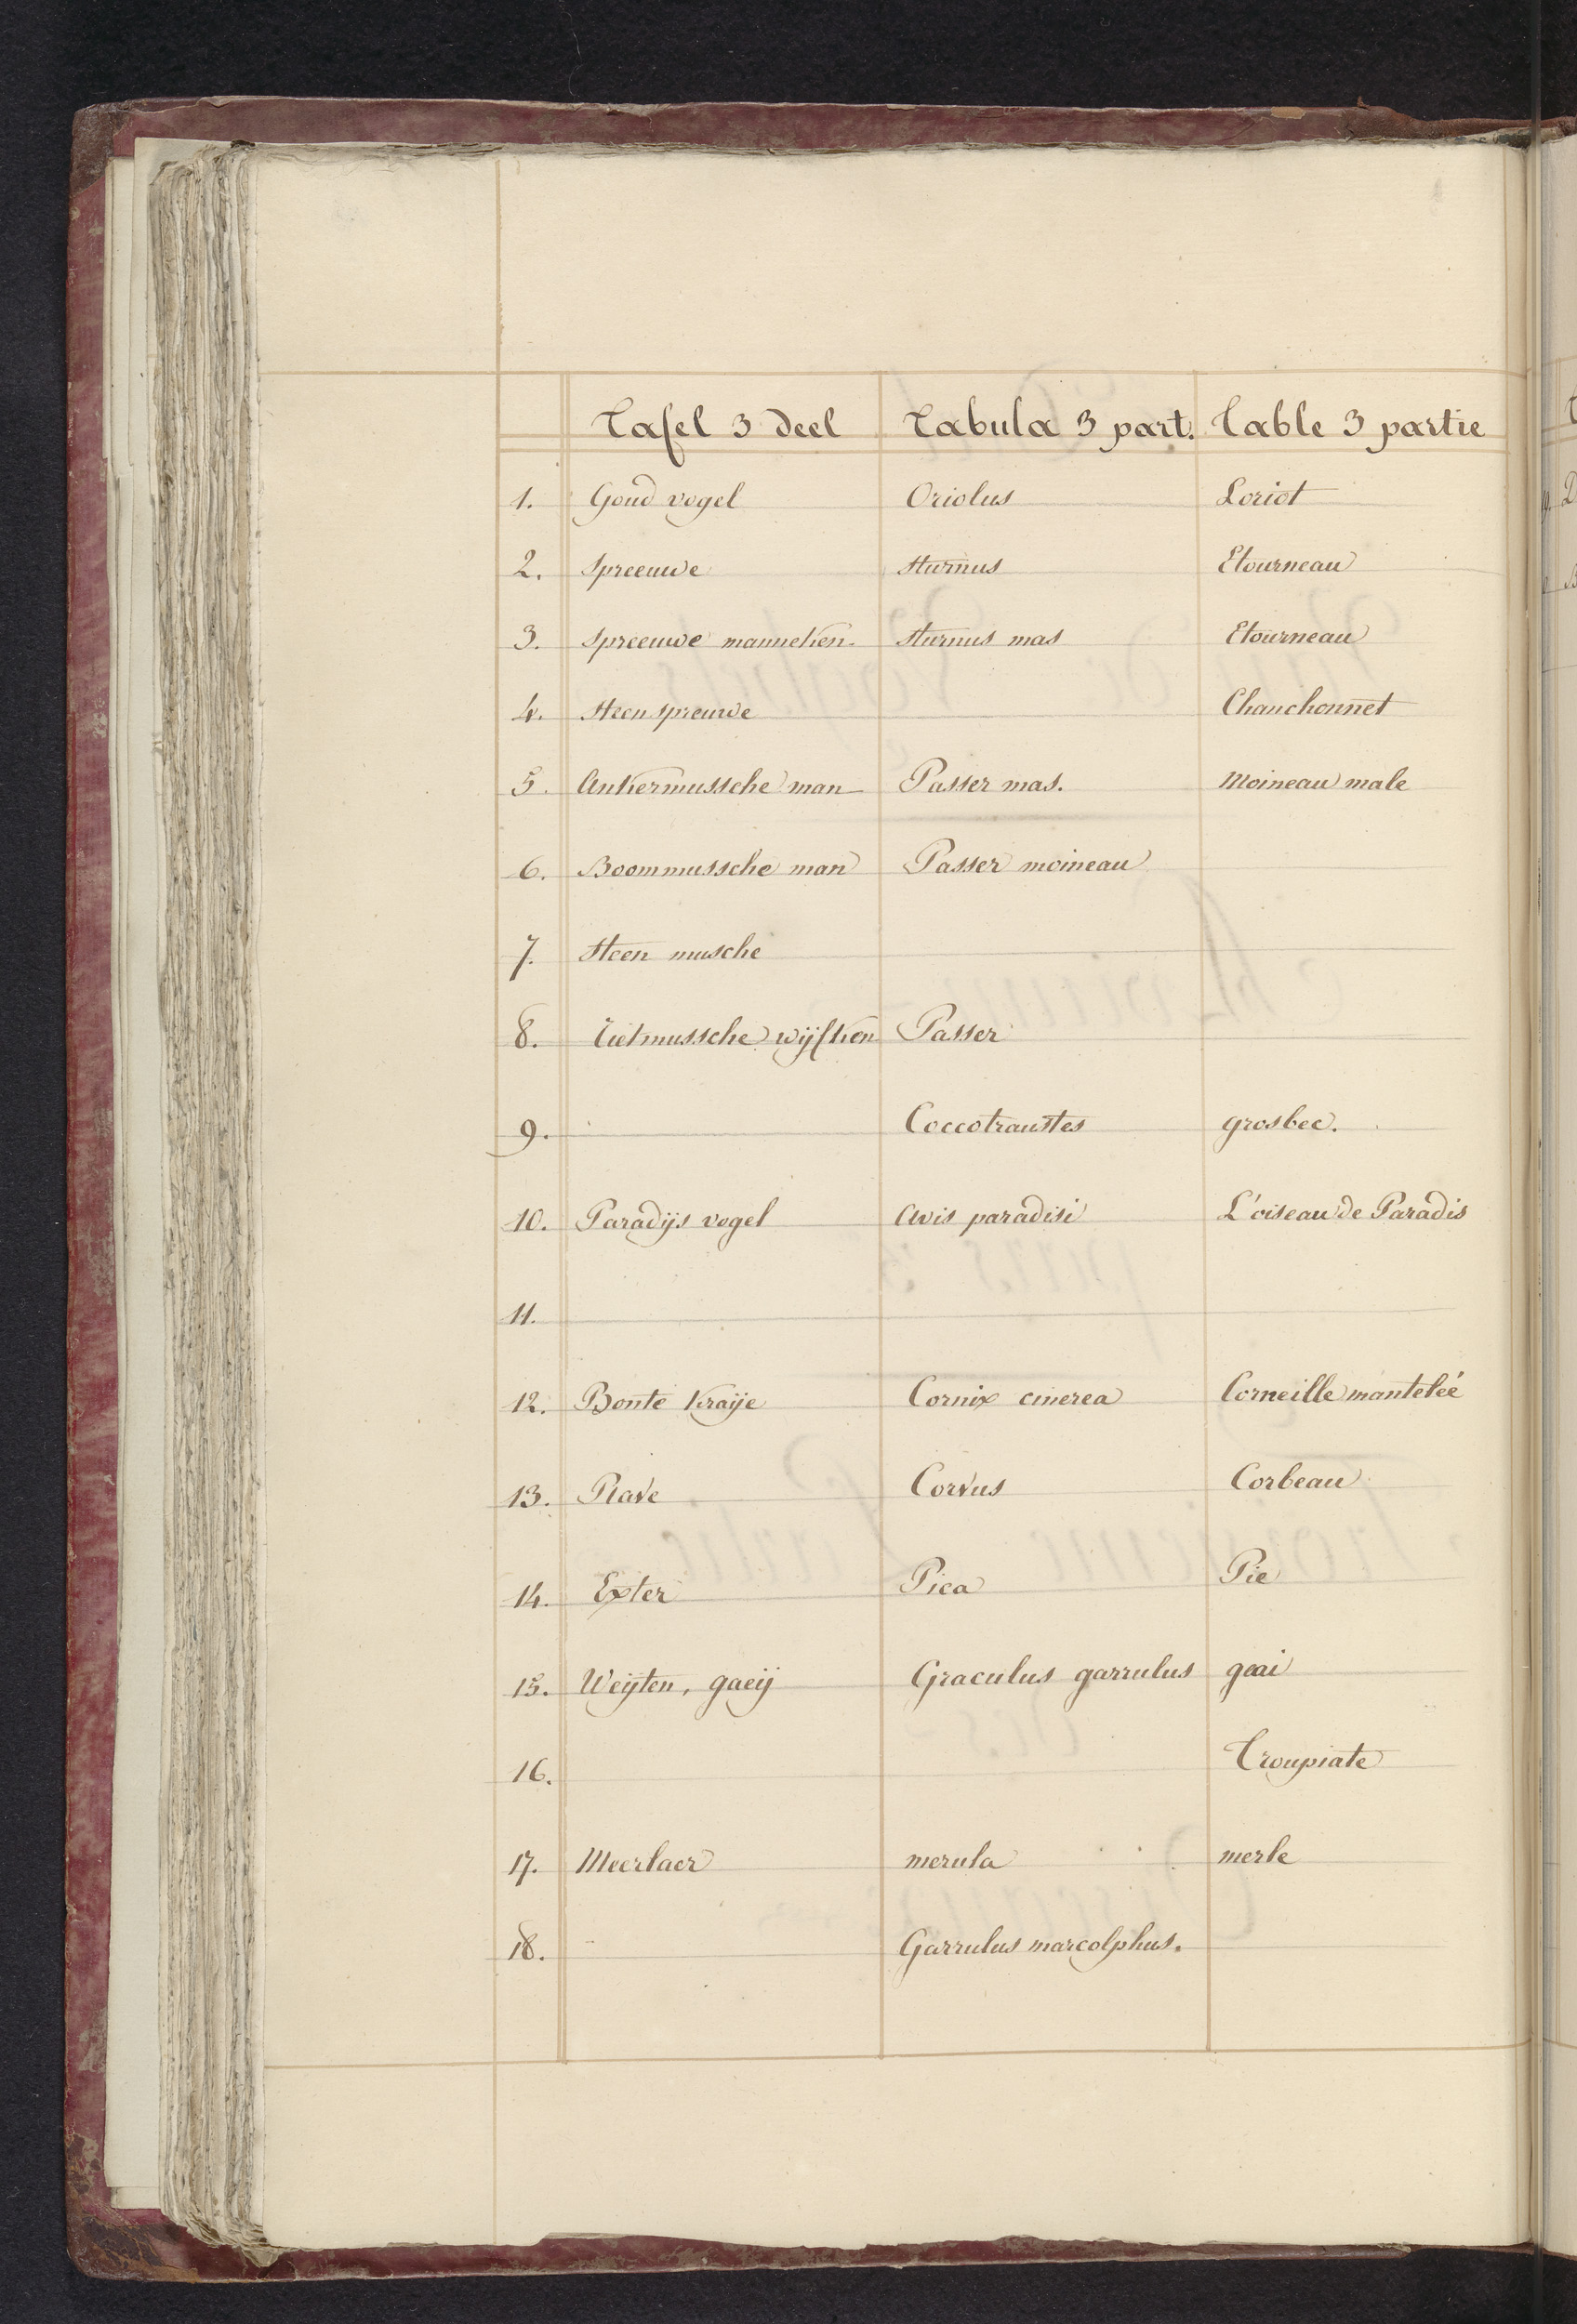 Tafel 3 deel Tabula 3 part. Table 3 partie
1. Goud vogel Oriolus Loriot
2. Spreeuwe Sturnus Etourneau
3. Spreeuwe manneken. Sturnus mas Etourneau
4. Steenspreuwe Chauchonnet
5. Ankermussche man Passer mas. Moineau male
6. Boommussche man Passer moineau
7. Steen musche
8. Tietmussche wijfken Passer
9. Coccotraustes grosbec.
10. Paradijs vogel Avis paradisi L'oiseau de Paradis
11.
12. Bonte Kraije Cornix cinerea Corneille manteleé
13. Rave Corvus Corbeau
14. Exter Pica Pie
15. Weijten, gaeij Graculus garrulus geai
16. Troupiate
17. Meerlaer merula merle
18. Garrulus marcolphus.